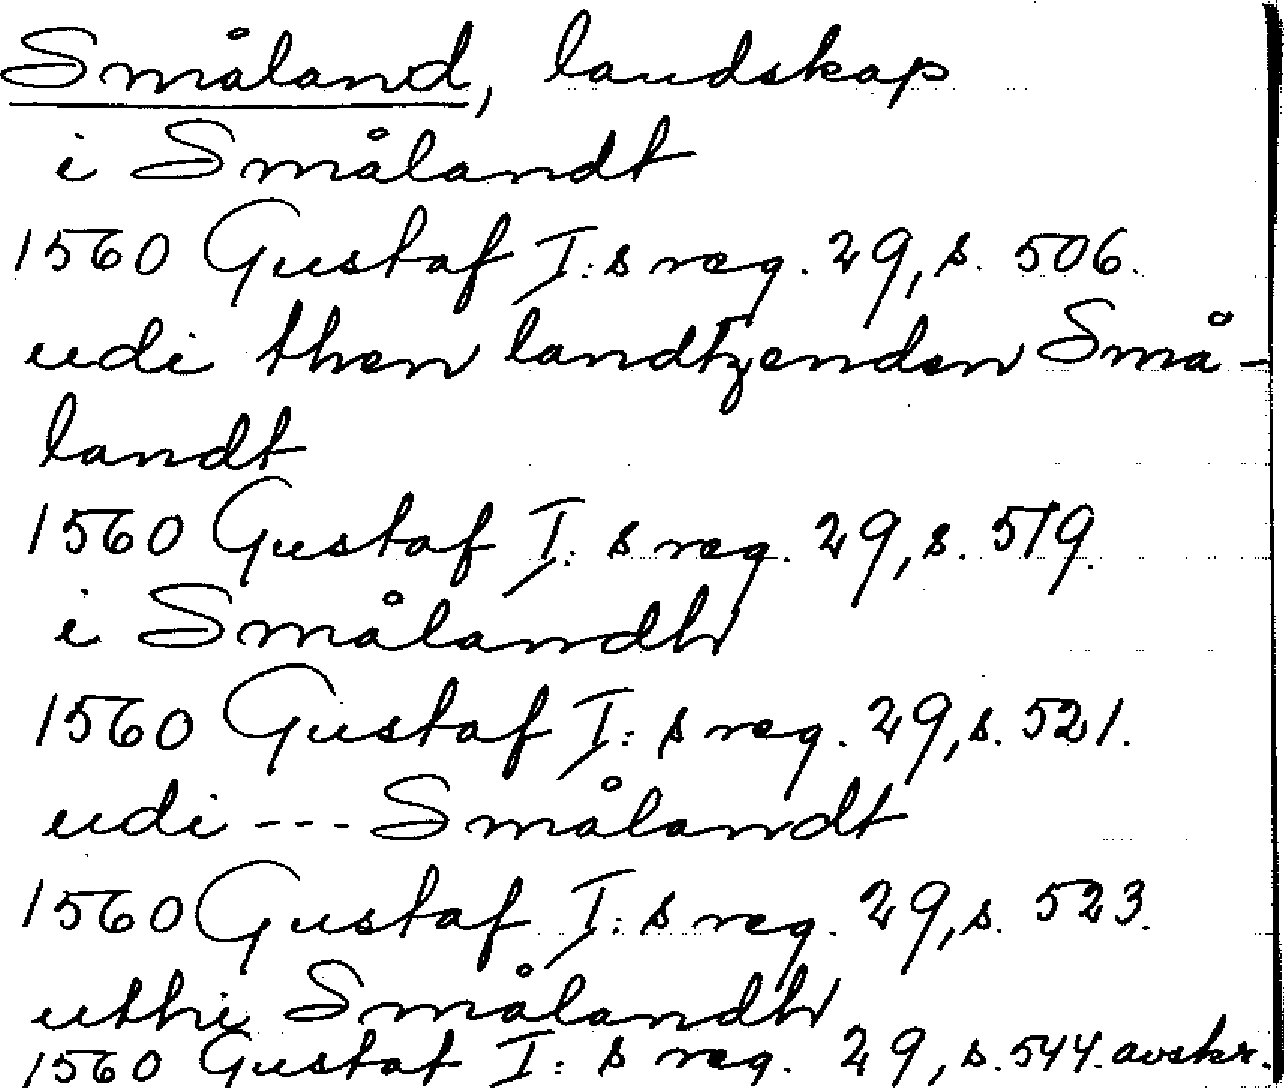 Småland, landskap
i Smålandt
1560 Gustaf I:s reg. 29, s. 506.
udi then landtzenden Små-
landt
1560 Gustaf I:s reg. 29, s. 519.
i Smålandh
1560 Gustaf I:s reg. 29, s. 521.
udi --- Smålandt
1560 Gustaf I:s reg. 29, s. 523.
uthi Smålandh
1560 Gustaf I:s reg. 29, s. 544. avskr.